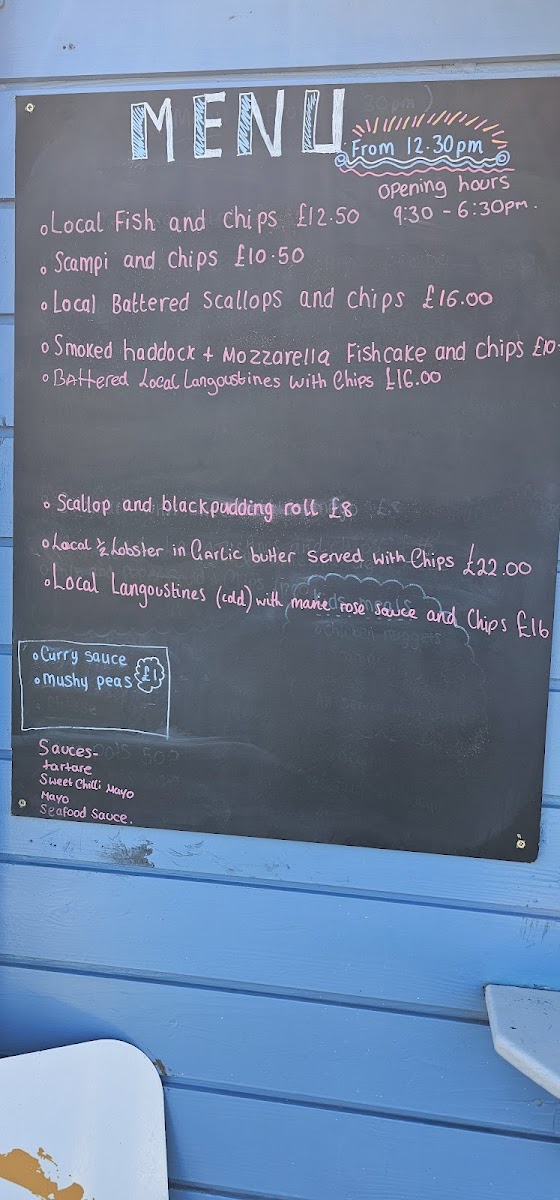 MENU
From 12.30pm
opening hours
9:30 - 6:30pm.
Local Fish and chips £12.50
Scampi and chips £10.50
Local Battered Scallops and chips £16.00
Smoked haddock + Mozzarella Fishcake and chips £10
Battered Local Langoustines with Chips £16.00
Scallop and blackpudding roll £8
Local ½ Lobster in Garlic butter served with Chips £22.00
Local Langoustines (cold) with marie rose sauce and Chips £16
Curry sauce
mushy peas £1
Sauces-
tartare
Sweet Chilli Mayo
Mayo
Seafood Sauce.